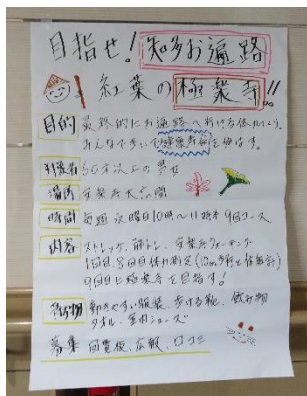 目指せ！知多お遍路
紅葉の極楽寺!!
目的 最終的にお遍路へ行ける体力づくり。
みんなで歩いて健康寿命を延ばす。
対象者 60才以上の男女
場所
時間 毎週 水曜日10時〜11時半 9回コース
内容 ストレッチ、筋トレ、ウォーキング
1回目、8回目体力測定
9回目に極楽寺を目指す！
持ち物 動きやすい服装、歩ける靴、飲み物
タオル、室内シューズ
募集 回覧板、広報、口コミ